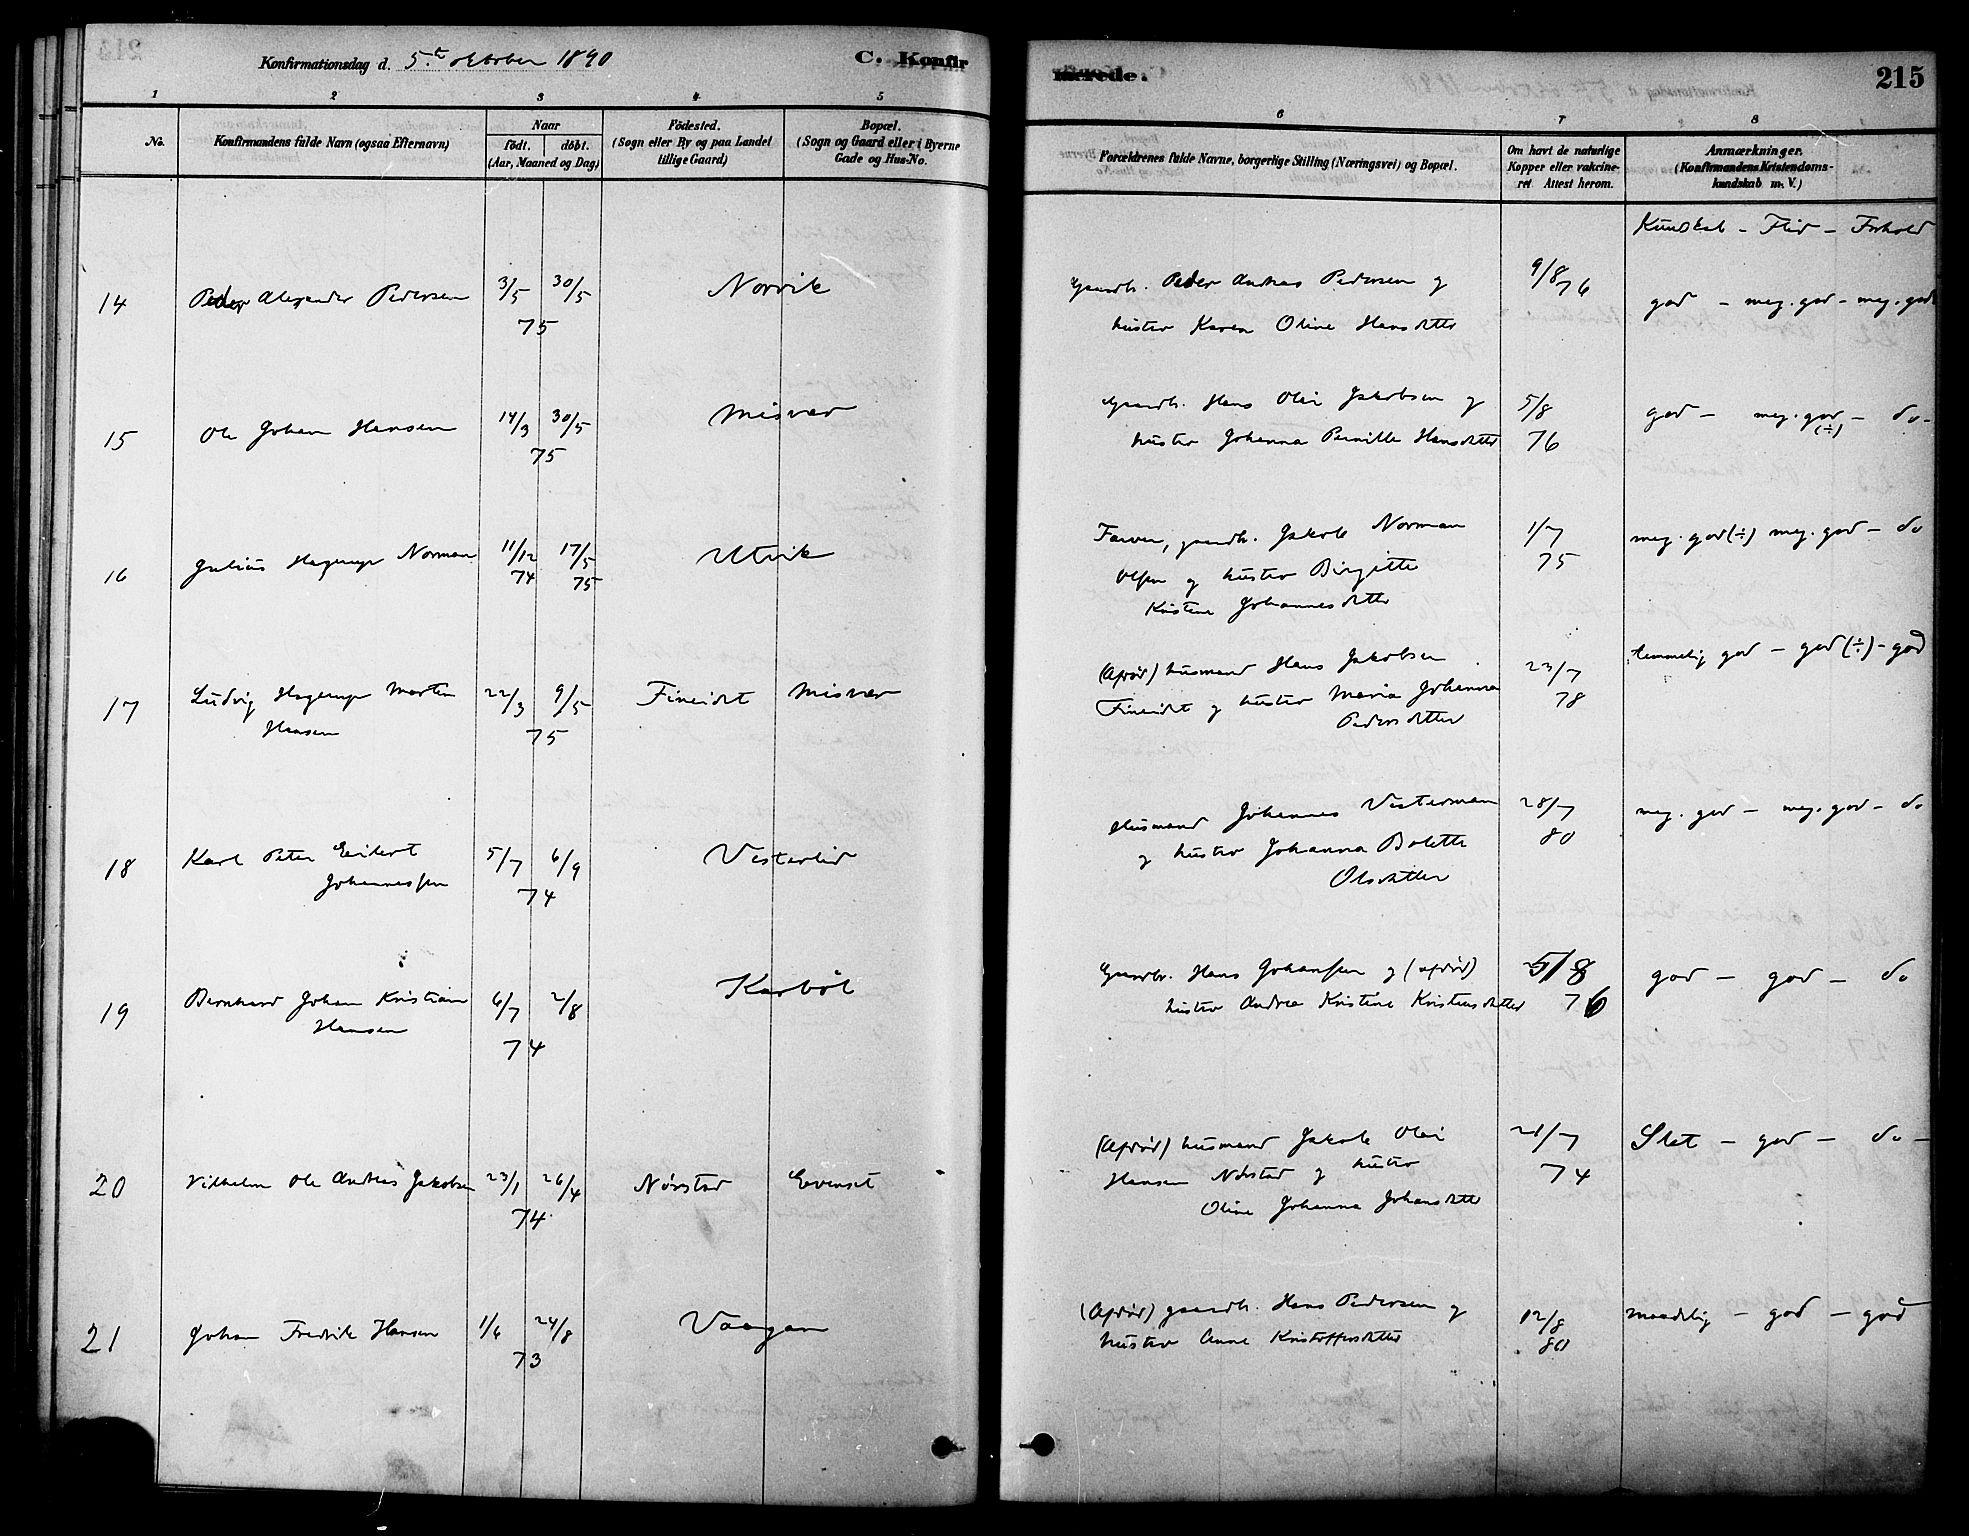 Konfirmationsdag d. 5.te oktober 1890 C. Konfir
merede. 215
1 2 3 4 5
6 7 8
No. Konfirmandens fulde Navn (ogsaa Efternavn) Naar Födested. Bopæl.
födt. döbt. (Sogn eller By og paa Landet (Sogn og Gaard eller i Byerne
(Aar, Maaned og Dag) tillige Gaard) Gade og Hus-No.
Forældrenes fulde Navne, borgerlige Stilling (Næringsvei) og Bopæl. Om havt de naturlige Anmærkninger.
Kopper eller vakcine- (Konfirmandens Kristendoms-
ret Attest herom. kundskab m. V.)
Kundskab - Flid - Forhold
14 Peder Alexander Pedersen 3/5 30/5 Norvik
75
Gaardb. Peder Andreas Pedersen og 9/8 76
hustru Karen Oline Hansdatter god - meg. god - meg. god
15 Ole Johan Hansen 14/3 30/5 Misvær
75
Gaardb. Hans Olai Jakobsen og 5/8 god - meg. god - do -
hustru Johanna Pernille Hansdatter 76 (÷)
16 Julius Hagerup Norman 11/12 17/5 Utvik
74 75
Farver, gaardb. Jakob Norman 1/7 meg. god (÷) meg. god - do
Olsen og hustru Birgitte 75
Kristine Johannesdatter
17 Ludvig Hagerup Martin 22/3 9/5 Fineidet Misvær
Hansen 75
(Afdød) husmand Hans Jakobsen 23/7 temmelig god - god (÷) - god
Fineidet og hustru Maria Johanna 78
Pedersdatter
18 Karl Peter Eilert 5/7 6/9 Vesterlid
Johannessen 74
Husmand Johannes Vesterman 28/7 meg. god - meg. god - do
og hustru Johanna Bolette 80
Olsdatter
19 Bernhard Johan Kristian 6/7 2/8 Karbøl
Hansen 74
Gaardbr. Hans Johansen og (afdød) 5/8 god - god - do
hustru Andrea Kristine Kristensdatter 76
20 Vilhelm Ole Andreas Jakobsen 23/1 26/4 Nørstad Evenset
74
(Afdød) husmand Jakob Olai 21/7 Slet - god - do -
Hansen Nørstad og hustru 74
Oline Johanna Johansdatter
21 Johan Fredrik Hansen 1/6 24/8 Vaagan
73
(Afdød) gaardb. Hans Pedersen og 12/8 maadelig - god - god
hustru Anne Kristoffersdatter 80